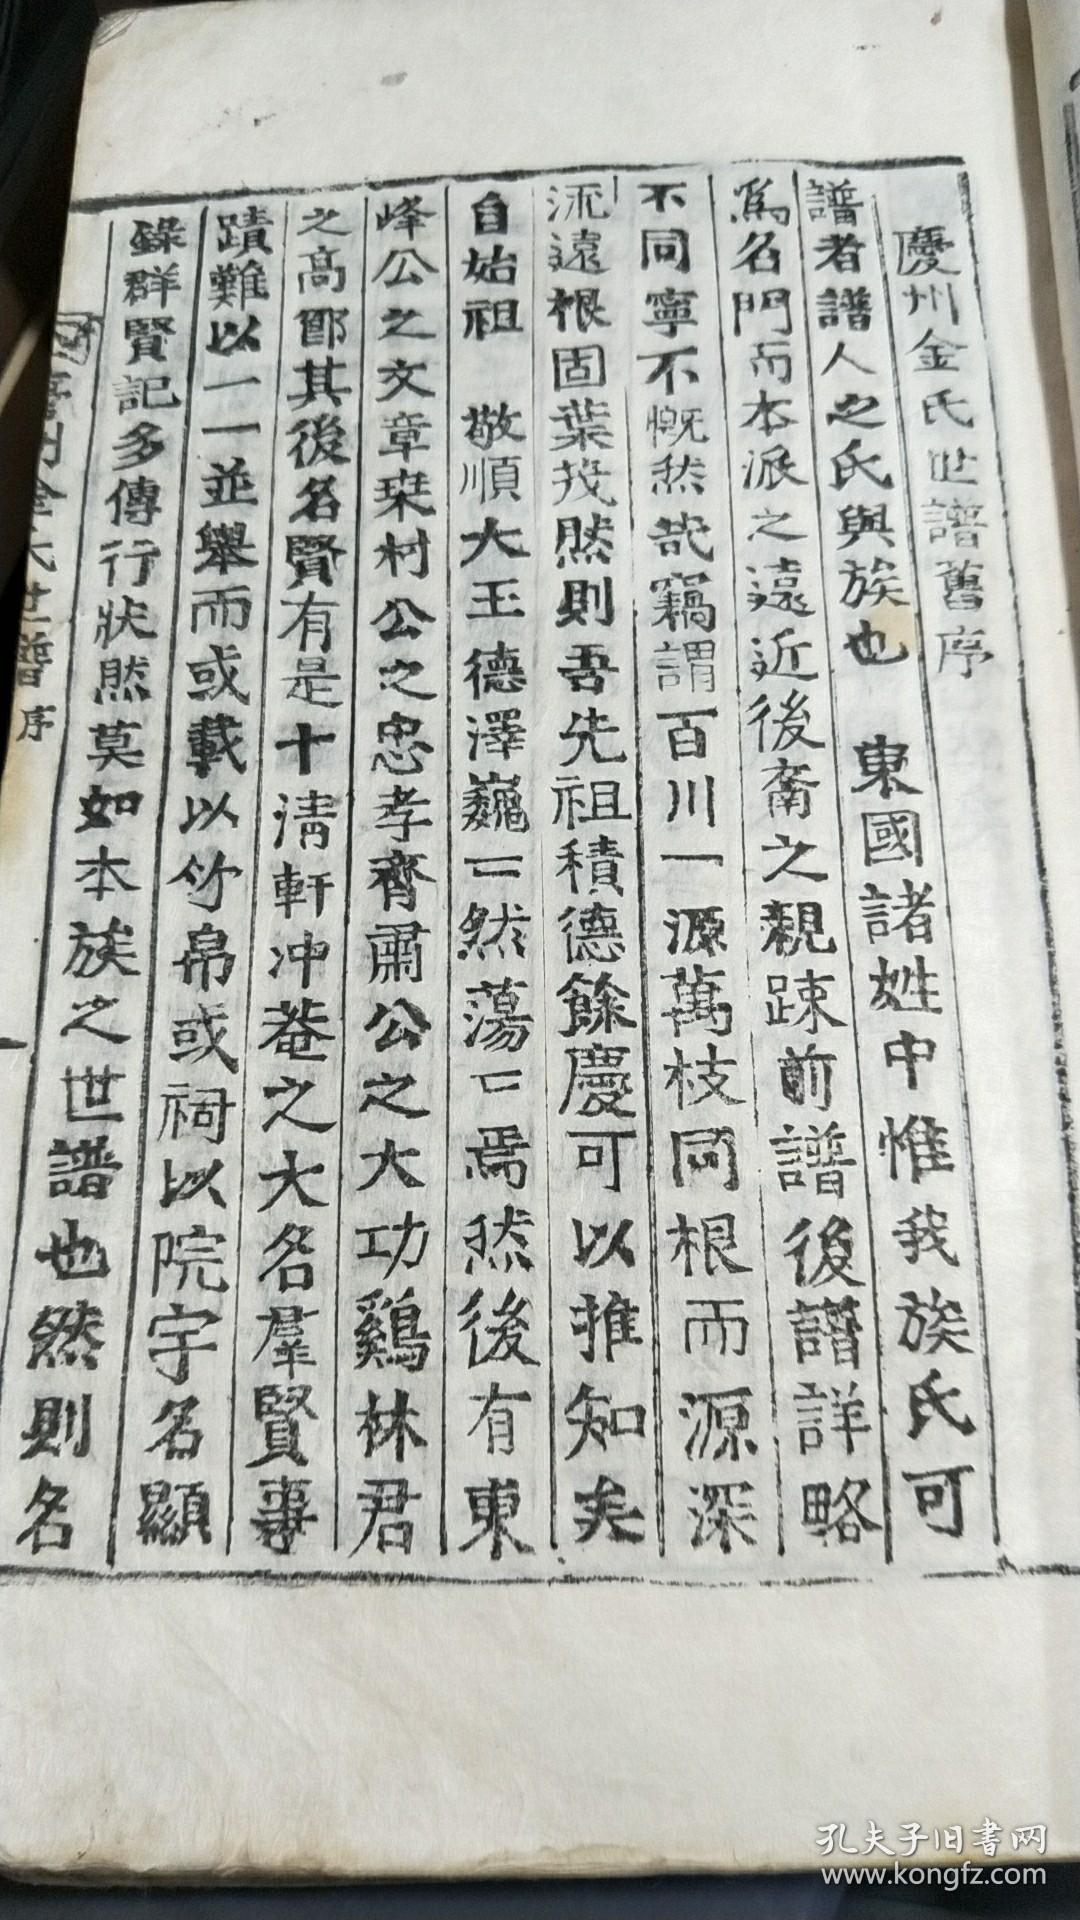 慶州金氏世譜舊序
譜者譜人之氏與族也　東國諸姓中惟我族氏可
爲名門而本派之遠近後裔之親疎前譜後譜詳略
不同寧不慨然哉竊謂百川一源萬枝同根而源深
流遠根固葉茂然則吾先祖積德餘慶可以推知矣
自始祖　敬順大王德澤巍〻然蕩〻焉然後有東
峰公之文章桒村公之忠孝齊肅公之大功鷄林君
之高節其後名賢有是十清軒冲菴之大名羣賢事
蹟難以一一並舉而或載以竹帛或祠以院宇名顯
錄群賢記多傳行狀然莫如本族之世譜也然則名
慶州金氏世譜 序
孔夫子旧书网
www.kongfz.com